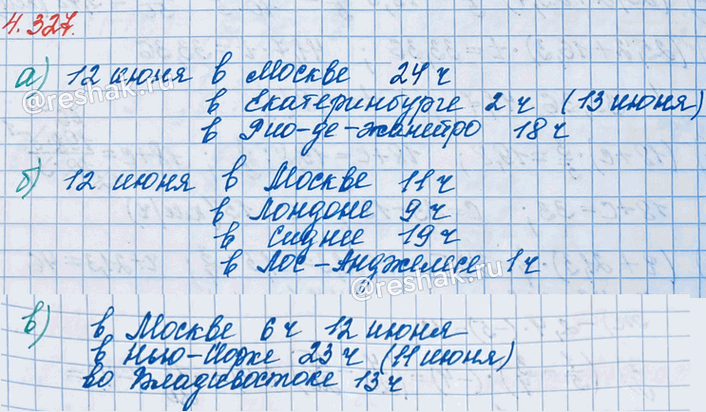 4.327.
а) 12 июня в Москве 24 ч
@reshak.ru
в Екатеринбурге 2 ч (13 июня)
в Рио-де-Жанейро 18 ч
б) 12 июня в Москве 11 ч
в Лондоне 9 ч
в Сиднее 19 ч
в Лос-Анджелесе 1 ч
@reshak.ru
в) в Москве 6 ч 12 июня
в Нью-Йорке 23 ч (11 июня)
во Владивостоке 13 ч